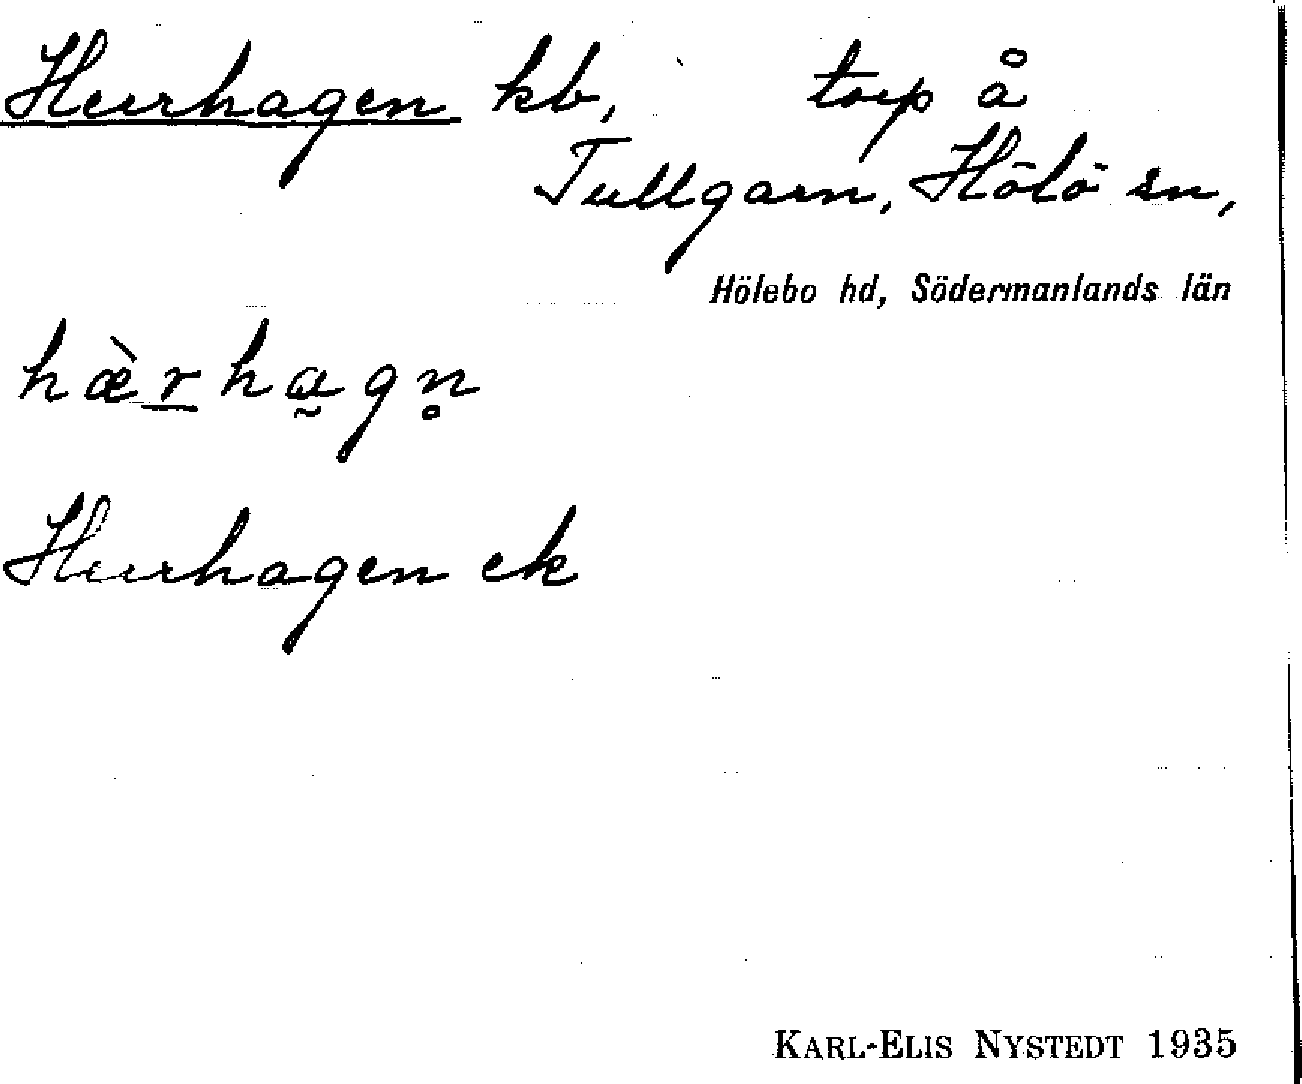 Herrhagen kb, torp å
Tullgarn, Hölö sn,
Hölebo hd, Södermanlands län
hæ̀r̲ha̰gn̥
Herrhagen ek
KARL-ELIS NYSTEDT 1935